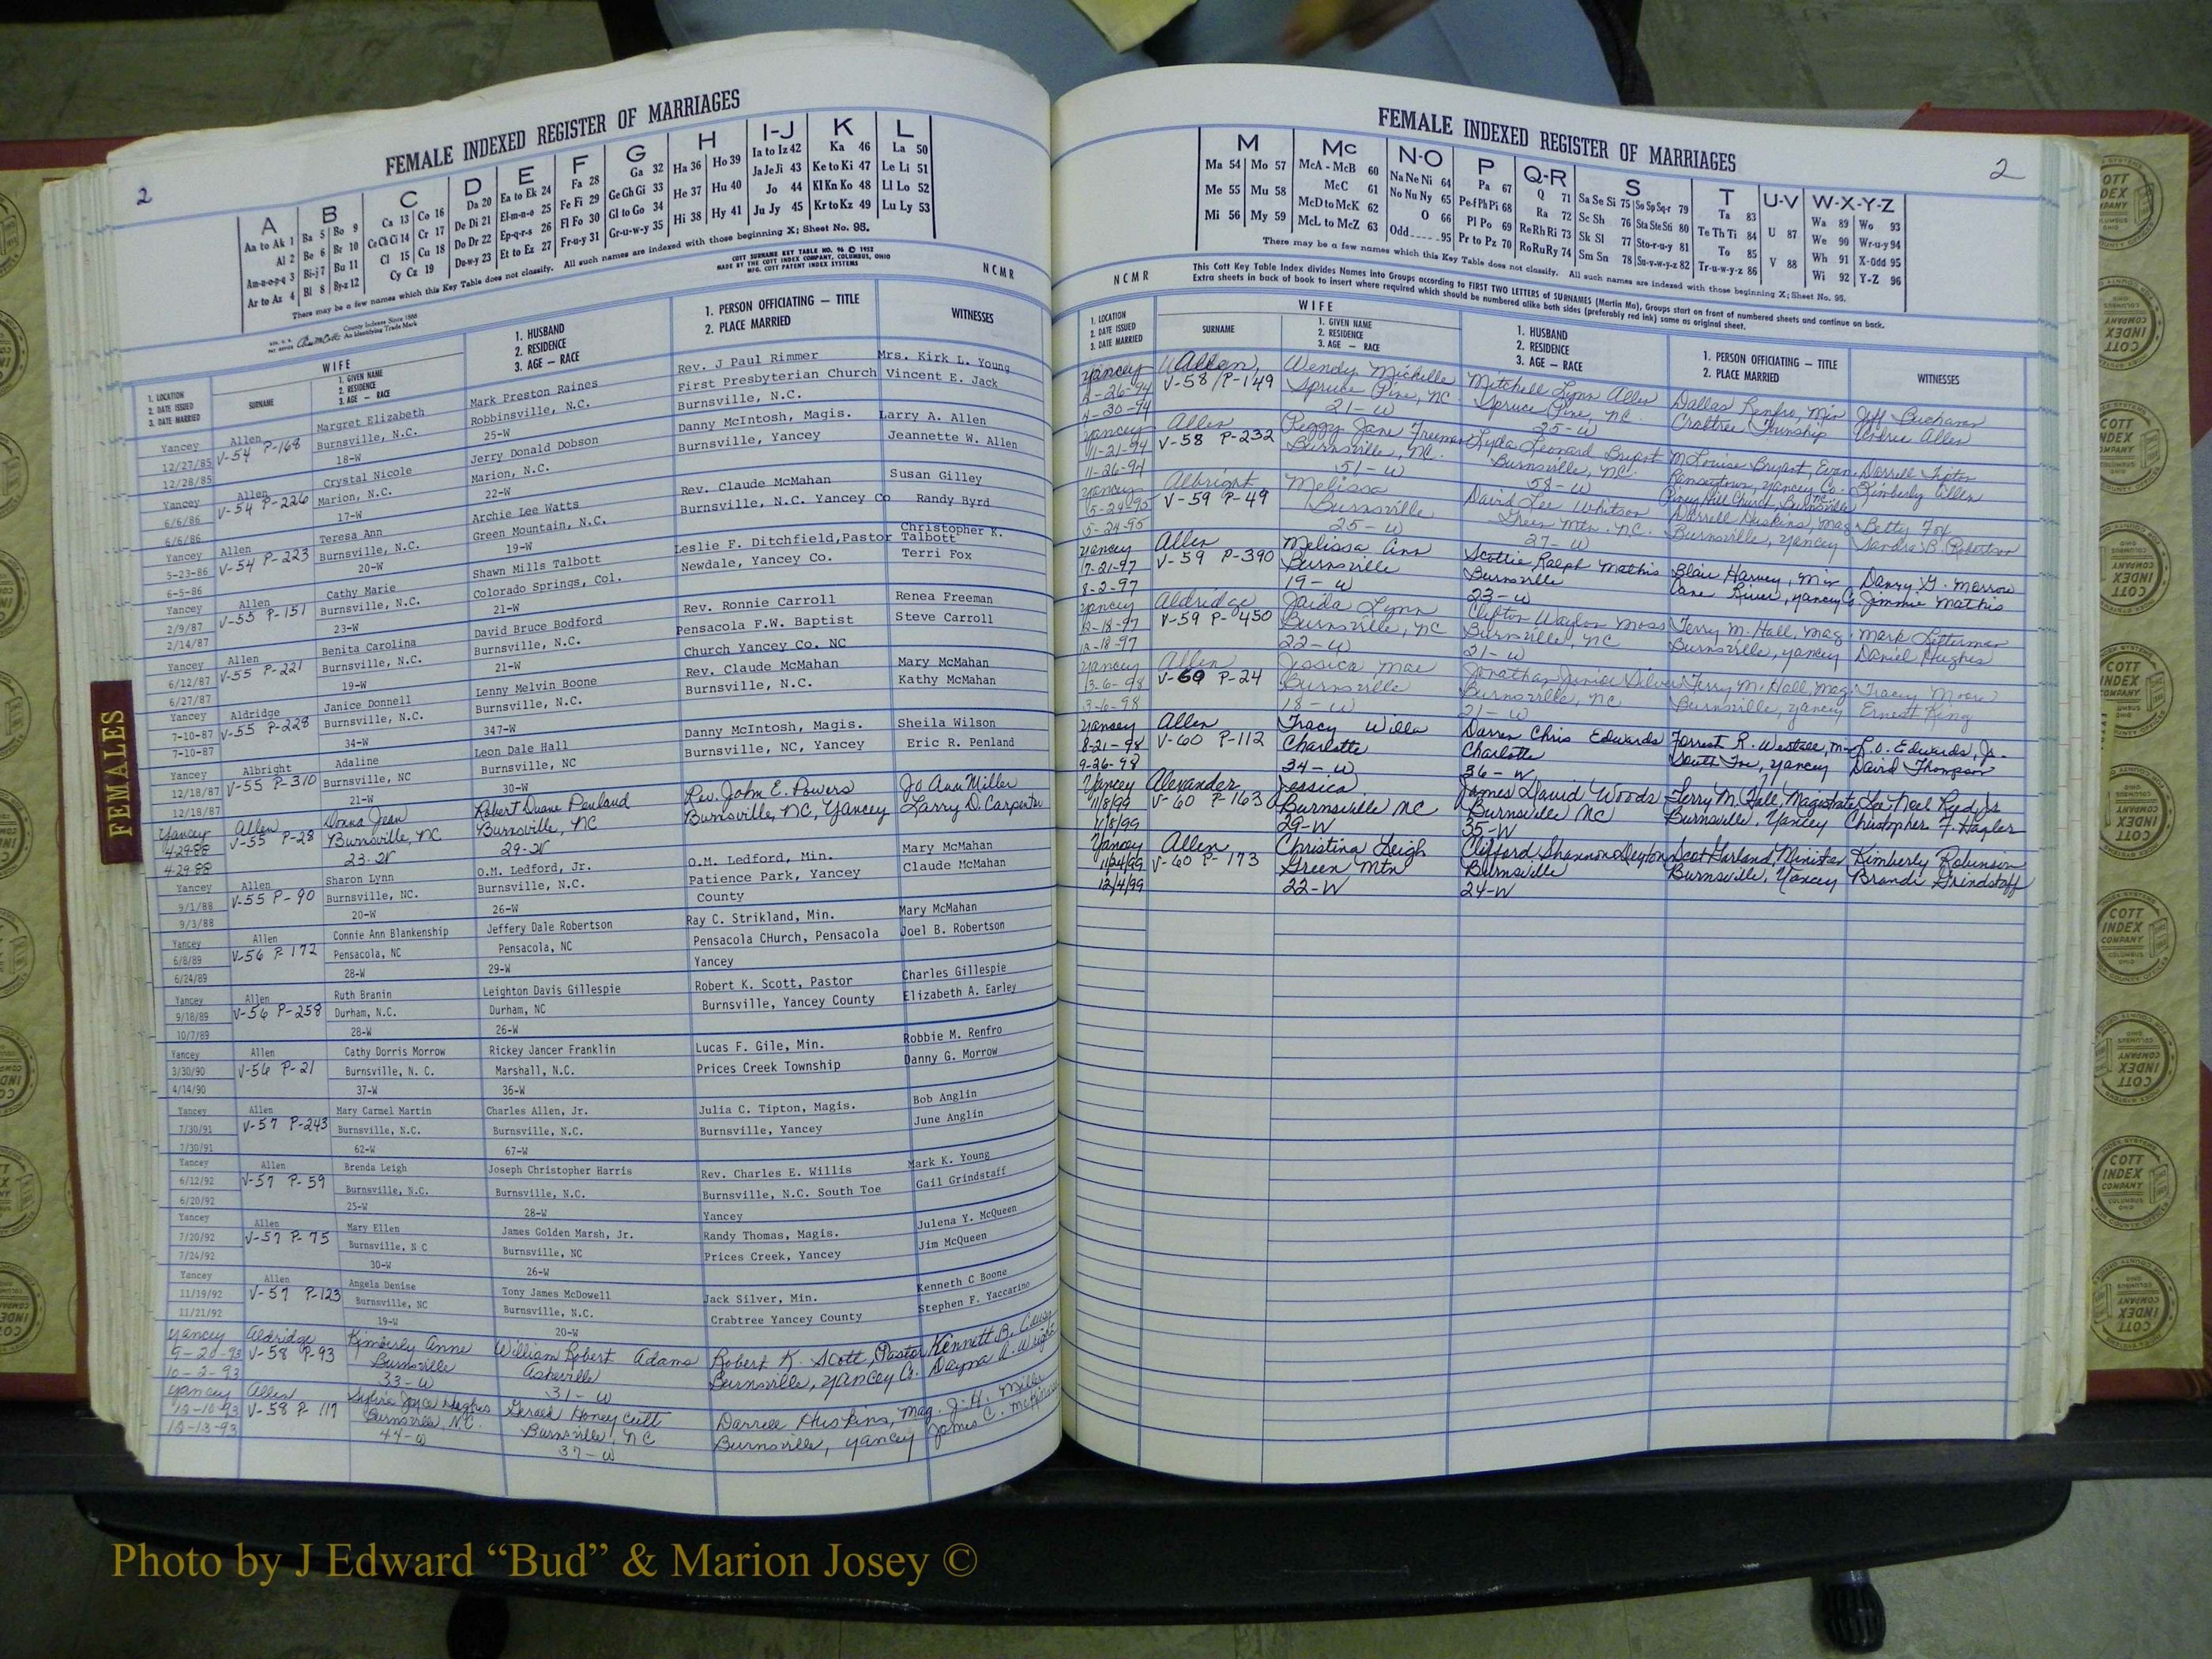 FEMALE INDEXED REGISTER OF MARRIAGES
2
A B C D E F G H I-J K L
Aa to Ak 1 Ba 5 Bo 9 Ca 13 Co 16 Da 20 Ea to Ek 24 Fa 28 Ga 32 Ha 36 Ho 39 Ia to Iz 42 Ka 46 La 50
Al 2 Be 6 Br 10 Ce Ch Ci 14 Cr 17 De Di 21 El-m-n-o 25 Fe Fi 29 Ge Gh Gi 33 He 37 Hu 40 Ja Je Ji 43 Ke to Ki 47 Le Li 51
Am-n-o-p-q 3 Bi-j 7 Bu 11 Cl 15 Cu 18 Do Dr 22 Ep-q-r-s 26 Fl Fo 30 Gl to Go 34 Hi 38 Hy 41 Jo 44 Kl Kn Ko 48 Ll Lo 52
Ar to Az 4 Bl 8 By-z 12 Cy Cz 19 Du-w-y 23 Et to Ez 27 Fr-u-y 31 Gr-u-w-y 35 Ju Jy 45 Kr to Kz 49 Lu Ly 53
There may be a few names which this Key Table does not classify. All such names are indexed with those beginning X; Sheet No. 95.
COTT SURNAME KEY TABLE NO. 96 © 1952
MADE BY THE COTT INDEX COMPANY, COLUMBUS, OHIO
MFG. COTT PATENT INDEX SYSTEMS
NCMR
County Indexes Since 1888
An Identifying Trade Mark
WIFE
1. LOCATION 2. DATE ISSUED 3. DATE MARRIED
SURNAME
1. GIVEN NAME 2. RESIDENCE 3. AGE — RACE
1. HUSBAND 2. RESIDENCE 3. AGE — RACE
1. PERSON OFFICIATING — TITLE 2. PLACE MARRIED
WITNESSES
Yancey Allen Margret Elizabeth Mark Preston Raines Rev. J Paul Rimmer Mrs. Kirk L. Young
12/27/85 V-54 P-168 Burnsville, N.C. Robbinsville, N.C. First Presbyterian Church Vincent E. Jack
12/28/85 18-W 25-W Burnsville, N.C.
Yancey Allen Crystal Nicole Jerry Donald Dobson Danny McIntosh, Magis. Larry A. Allen
6/6/86 V-54 P-226 Marion, N.C. Marion, N.C. Burnsville, Yancey Jeannette W. Allen
6/6/86 17-W 22-W
Yancey Allen Teresa Ann Archie Lee Watts Rev. Claude McMahan Susan Gilley
5-23-86 V-54 P-223 Burnsville, N.C. Green Mountain, N.C. Burnsville, N.C. Yancey Co Randy Byrd
6-5-86 20-W 19-W
Yancey Allen Cathy Marie Shawn Mills Talbott Leslie F. Ditchfield,Pastor Christopher K. Talbott
2/9/87 V-55 P-151 Burnsville, N.C. Colorado Springs, Col. Newdale, Yancey Co. Terri Fox
2/14/87 23-W 21-W
Yancey Allen Benita Carolina David Bruce Bodford Rev. Ronnie Carroll Renea Freeman
6/12/87 V-55 P-221 Burnsville, N.C. Burnsville, N.C. Pensacola F.W. Baptist Steve Carroll
6/27/87 19-W 21-W Church Yancey Co. NC
Yancey Aldridge Janice Donnell Lenny Melvin Boone Rev. Claude McMahan Mary McMahan
7-10-87 V-55 P-228 Burnsville, N.C. Burnsville, N.C. Burnsville, N.C. Kathy McMahan
7-10-87 34-W 347-W
Yancey Albright Adaline Leon Dale Hall Danny McIntosh, Magis. Sheila Wilson
12/18/87 V-55 P-310 Burnsville, NC Burnsville, NC Burnsville, NC, Yancey Eric R. Penland
12/18/87 21-W 30-W
Yancey Allen Donna Jean Robert Duane Penland Rev. John E. Powers Jo Ann Miller
4-29-88 V-55 P-28 Burnsville, NC Burnsville, NC Burnsville, NC, Yancey Larry D. Carpenter
4-29-88 23-W 29-W
Yancey Allen Sharon Lynn O.M. Ledford, Jr. O.M. Ledford, Min. Mary McMahan
9/1/88 V-55 P-90 Burnsville, NC. Burnsville, N.C. Patience Park, Yancey Claude McMahan
9/3/88 20-W 26-W County
Yancey Allen Connie Ann Blankenship Jeffery Dale Robertson Ray C. Strikland, Min. Mary McMahan
6/8/89 V-56 P-172 Pensacola, NC Pensacola, NC Pensacola CHurch, Pensacola Joel B. Robertson
6/24/89 28-W 29-W Yancey
Yancey Allen Ruth Branin Leighton Davis Gillespie Robert K. Scott, Pastor Charles Gillespie
9/18/89 V-56 P-258 Durham, N.C. Durham, NC Burnsville, Yancey County Elizabeth A. Earley
10/7/89 28-W 26-W
Yancey Allen Cathy Dorris Morrow Rickey Jancer Franklin Lucas F. Gile, Min. Robbie M. Renfro
3/30/90 V-56 P-21 Burnsville, N. C. Marshall, N.C. Prices Creek Township Danny G. Morrow
4/14/90 37-W 36-W
Yancey Allen Mary Carmel Martin Charles Allen, Jr. Julia C. Tipton, Magis. Bob Anglin
7/30/91 V-57 P-243 Burnsville, N.C. Burnsville, N.C. Burnsville, Yancey June Anglin
7/30/91 62-W 67-W
Yancey Allen Brenda Leigh Joseph Christopher Harris Rev. Charles E. Willis Mark K. Young
6/12/92 V-57 P-59 Burnsville, N.C. Burnsville, N.C. Burnsville, N.C. South Toe Gail Grindstaff
6/20/92 25-W 28-W Yancey
Yancey Allen Mary Ellen James Golden Marsh, Jr. Randy Thomas, Magis. Julena Y. McQueen
7/20/92 V-57 P-75 Burnsville, N C Burnsville, NC Prices Creek, Yancey Jim McQueen
7/24/92 30-W 26-W
Yancey Allen Angela Denise Tony James McDowell Jack Silver, Min. Kenneth C Boone
11/19/92 V-57 P-123 Burnsville, NC Burnsville, N.C. Crabtree County Stephen F. Yaccarino
11/21/92 19-W 20-W
Yancey Aldridge Kimberly Anne William Robert Adams Robert K. Scott, Pastor Kennett B.
9-20-93 V-58 P-93 Burnsville Asheville Burnsville, Yancey Co. Dayna A. Wright
10-2-93 33-W 31-W
Yancey Allen Sylvia Joyce Hughes Gerald Honeycutt Darrell Huskins, Mag. J.H. Miller
12-10-93 V-58 P-117 Burnsville, N.C. Burnsville, NC Burnsville, Yancey James C.
12-13-93 44-W 37-W
FEMALES
FEMALE INDEXED REGISTER OF MARRIAGES
2
M Mc N-O P Q-R S T U-V W-X-Y-Z
Ma 54 Mo 57 McA - McB 60 Na Ne Ni 64 Pa 67 Q 71 Sa Se Si 75 So Sp Sq-r 79 Ta 83 U 87 Wa 89 Wo 93
Me 55 Mu 58 McC 61 No Nu Ny 65 Pe-f Ph Pi 68 Ra 72 Sc Sh 76 Sta Ste Sti 80 Te Th Ti 84 We 90 Wr-u-y 94
Mi 56 My 59 McD to McK 62 O 66 Pl Po 69 Re Rh Ri 73 Sk Sl 77 Sto-r-u-y 81 To 85 V 88 Wh 91 X-Odd 95
McL to McZ 63 Odd 95 Pr to Pz 70 Ro Ru Ry 74 Sm Sn 78 Su-v-w-y-z 82 Tr-u-w-y-z 86 Wi 92 Y-Z 96
There may be a few names which this Key Table does not classify. All such names are indexed with those beginning X; Sheet No. 95.
NCMR
This Cott Key Table Index divides Names into Groups according to FIRST TWO LETTERS of SURNAMES (Martin Ma), Groups start on front of numbered sheets and continue on back.
Extra sheets in back of book to insert where required which should be numbered alike both sides (preferably red ink) same as original sheet.
WIFE
1. LOCATION 2. DATE ISSUED 3. DATE MARRIED
SURNAME
1. GIVEN NAME 2. RESIDENCE 3. AGE — RACE
1. HUSBAND 2. RESIDENCE 3. AGE — RACE
1. PERSON OFFICIATING — TITLE 2. PLACE MARRIED
WITNESSES
Yancey Allen Wendy Michelle Mitchell Lynn Allen Dallas Renfro, Min Jeff Buchanan
4-26-94 V-58 P-149 Spruce Pine, NC Spruce Pine, NC. Crabtree Township Andrea Allen
4-30-94 21-W 25-W
Yancey Allen Peggy Jane Freeman Lyda Leonard Bryant M Louise Bryant, Evan. Darrell Tipton
11-21-94 V-58 P-232 Burnsville, NC. Burnsville, NC. Ramseytown, Yancey Co. Kimberly Allen
11-26-94 51-W 58-W Piney Hill Church, Burnsville
Yancey Albright Melissa David Lee Whitson Darrell Huskins, Mag Betty Fox
5-24-95 V-59 P-49 Burnsville Green Mtn. NC. Burnsville, Yancey Sandra B. Robertson
5-24-95 25-W 27-W
Yancey Allen Melissa Ann Scottie Ralph Mathis Blair Harvey, Min Danny G. Morrow
7-21-97 V-59 P-390 Burnsville Burnsville Cane River, Yancey Co Jimmie Mathis
8-2-97 19-W 23-W
Yancey Aldridge Jaida Lynn Clifton Waylon Moss Terry M. Hall, Mag. Mark Letterman
12-18-97 V-59 P-450 Burnsville, NC Burnsville, NC Burnsville, Yancey Daniel Hughes
12-18-97 22-W 21-W
Yancey Allen Jessica Mae Jonathan Junior Silver Terry M. Hall, Mag. Tracey Moore
3-6-98 V-60 P-24 Burnsville Burnsville, NC Burnsville, Yancey Ernest King
3-6-98 18-W 21-W
Yancey Allen Tracy Willa Darren Chris Edwards Forrest R. Westall, M. L.O. Edwards, Jr.
8-21-98 V-60 P-112 Charlotte Charlotte South Toe, Yancey David Thompson
9-26-98 34-W 36-W
Yancey Alexander Jessica James David Woods Terry M. Hall, Magistrate Noel Reed, Jr.
11/8/99 V-60 P-163 Burnsville NC Burnsville NC Burnsville, Yancey Christopher F. Hagler
11/8/99 29-W 35-W
Yancey Allen Christina Leigh Clifford Shannon Deyton Scot Garland, Minister Kimberly Robinson
11/24/99 V-60 P-173 Green Mtn Burnsville Burnsville, Yancey Brandi Grindstaff
12/4/99 22-W 24-W
COTT INDEX COMPANY COLUMBUS OHIO
Photo by J Edward “Bud” & Marion Josey ©